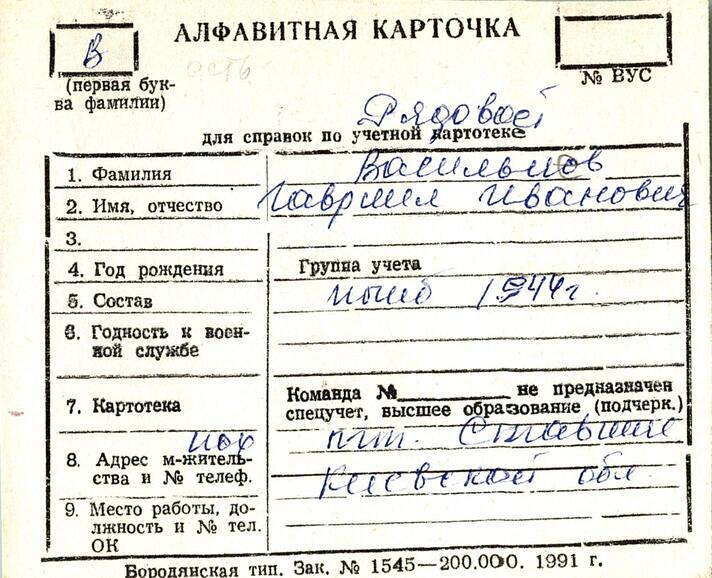 АЛФАВИТНАЯ КАРТОЧКА
В
(первая бук-
ва фамилии)
№ ВУС
Рядовой
для справок по учетной картотеке
1. Фамилия Васильцов
2. Имя, отчество Гавриил Иванович
3.
4. Год рождения Группа учета
5. Состав погиб 1944г.
6. Годность к воен-
ной службе
7. Картотека Команда № не предназначен
спецучет, высшее образование (подчерк.)
пох пгт. Ставище
8. Адрес м-житель-
ства и № телеф. Киевской обл.
9. Место работы, до-
лжность и № тел.
ОК
Бородянская тип. Зак. № 1545—200.000. 1991 г.